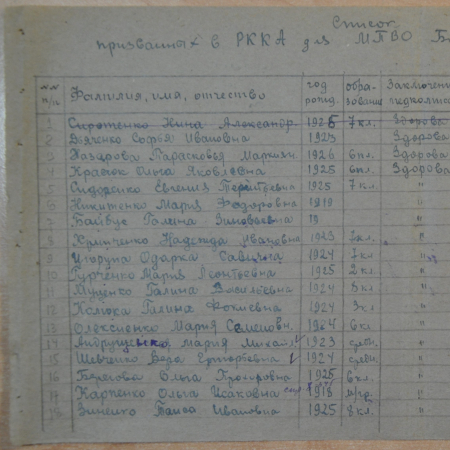 Список
призванных в РККА для МПВО
№№ п/п Фамилия, имя, отчество год рожд. образование Заключение медкомис
1 Сиротенко Нина Александр 1926 7 кл. Здорова
2 Дяченко Софья Ивановна 1923 Здорова
3 Назарова Парасковья 1926 6 кл. Здорова
4 Кравчок Ольга Яковлевна 1925 6 кл. Здорова
5 Сидоренко Евгения 1925 7 кл. "
6 Никитенко Мария Федоровна 1919 "
7 Байбус Галина Зиновьевна 19 "
8 Надежда Ивановна 1923 "
9 Одарка Савишна 1924 "
10 Гурченко Мария Леонтьевна 1925 2 кл. "
11 Муценко Галина Васильевна 1924 5 кл. "
12 Галина Фокиевна 1924 3 кл "
13 Олексиенко Мария Семеновн. 1924 6 кл. "
14 Андрущенко Мария Михаил 1923 средн. "
15 Шевченко Вера 1924 средн. "
16 Ольга 1925 6 кл. "
17 Карпенко Ольга Исаковна 1918 "
18 Зинченко Ивановна 1925 8 кл. "